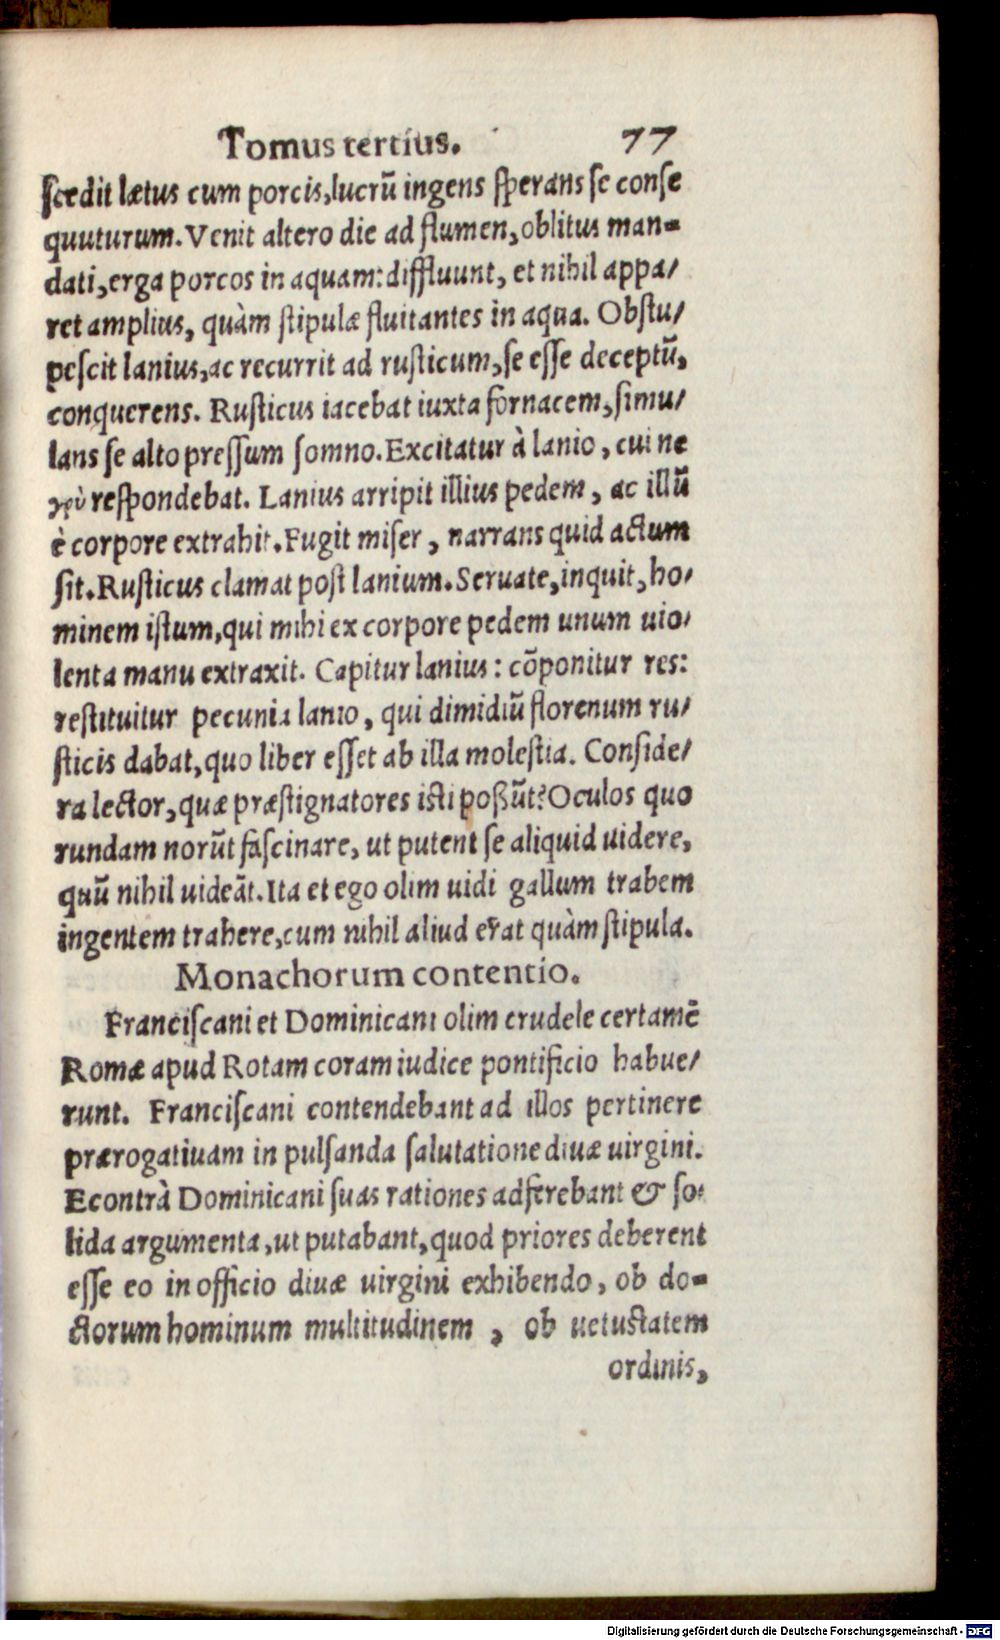 Tomus tertius. 77
scedit lætus cum porcis, lucrũ ingens sperans se conse
quuturum. Venit altero die ad flumen, oblitus man-
dati, erga porcos in aquam: diffluunt, et nihil appa/
ret amplius, quàm stipulæ fluitantes in aqua. Obstu/
pescit lanius, ac recurrit ad rusticum, se esse deceptũ,
conquerens. Rusticus iacebat iuxta fornacem, simu/
lans se alto pressum somno. Excitatur à lanio, cui ne
γρὺ respondebat. Lanius arripit illius pedem, ac illũ
è corpore extrahit. Fugit miser, narrans quid actum
sit. Rusticus clamat post lanium. Seruate, inquit, ho/
minem istum, qui mihi ex corpore pedem unum uio/
lenta manu extraxit. Capitur lanius: cõponitur res:
restituitur pecunia lanio, qui dimidiũ florenum ru/
sticis dabat, quo liber esset ab illa molestia. Conside/
ra lector, quæ præstignatores isti poßũt? Oculos quo
rundam norũt fascinare, ut putent se aliquid uidere,
quũ nihil uideãt. Ita et ego olim uidi gallum trabem
ingentem trahere, cum nihil aliud erat quàm stipula.
Monachorum contentio.
Franciscani et Dominicani olim crudele certamẽ
Romæ apud Rotam coram iudice pontificio habue/
runt. Franciscani contendebant ad illos pertinere
prærogatiuam in pulsanda salutatione diuæ uirgini.
Econtrà Dominicani suas rationes adferebant & so/
lida argumenta, ut putabant, quod priores deberent
esse eo in officio diuæ uirgini exhibendo, ob do-
ctorum hominum multitudinem, ob uetustatem
ordinis,
Digitalisierung gefördert durch die Deutsche Forschungsgemeinschaft - DFG